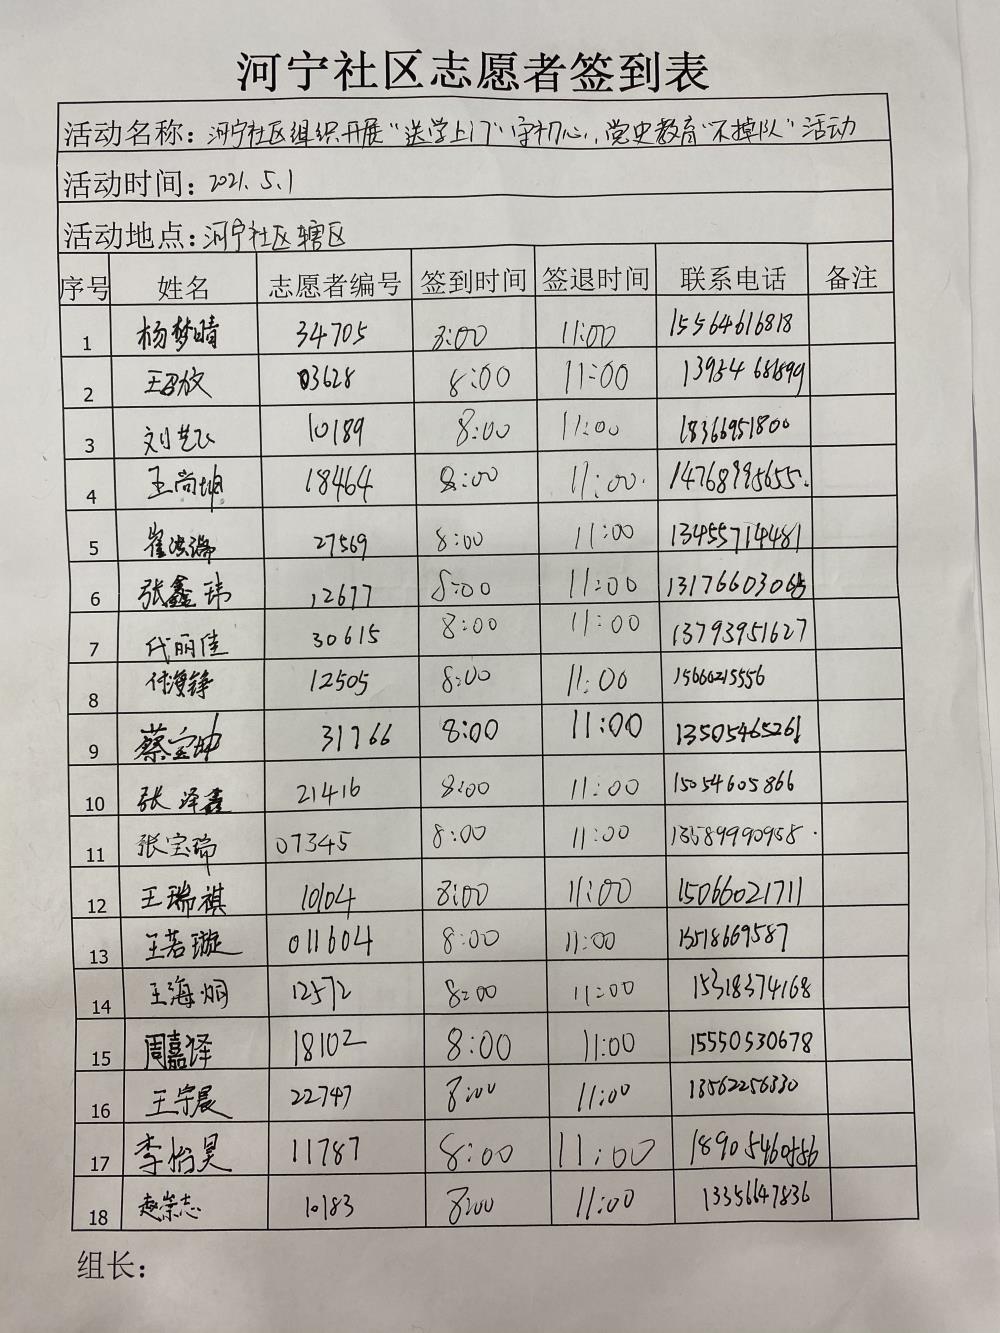 河宁社区志愿者签到表
活动名称：河宁社区组织开展"送学上门"守初心，党史教育"不掉队"活动
活动时间：2021.5.1
活动地点：河宁社区辖区
序号 姓名 志愿者编号 签到时间 签退时间 联系电话 备注
1 杨梦晴 34705 8:00 11:00 15564616818
2 03628 8:00 11:00
3 刘艺飞 10189 8:00 11:00 18366951800
4 王尚坤 18464 8:00 11:00. 14768995655.
5 27569 8:00 11:00 13455714481
6 张鑫玮 12677 8:00 11:00 13176603065
7 代丽佳 30615 8:00 11:00 13793951627
8 12505 8:00 11:00 15666215556
9 蔡宝坤 31766 8:00 11:00 13505465261
10 张泽鑫 21416 8:00 11:00 15054605866
11 张宝瑞 07345 8:00 11:00 13589990958.
12 王瑞祺 10104 8:00 11:00 15066021711
13 王若璇 011604 8:00 11:00 13518669587
14 王海炯 12572 8:00 11:00 15318374168
15 周嘉泽 18102 8:00 11:00 15550530678
16 王宇晨 22747 8:00 11:00 13562256330
17 李怡昊 11787 8:00 11:00
18 赵崇志 10183 8:00 11:00 13356647836
组长：